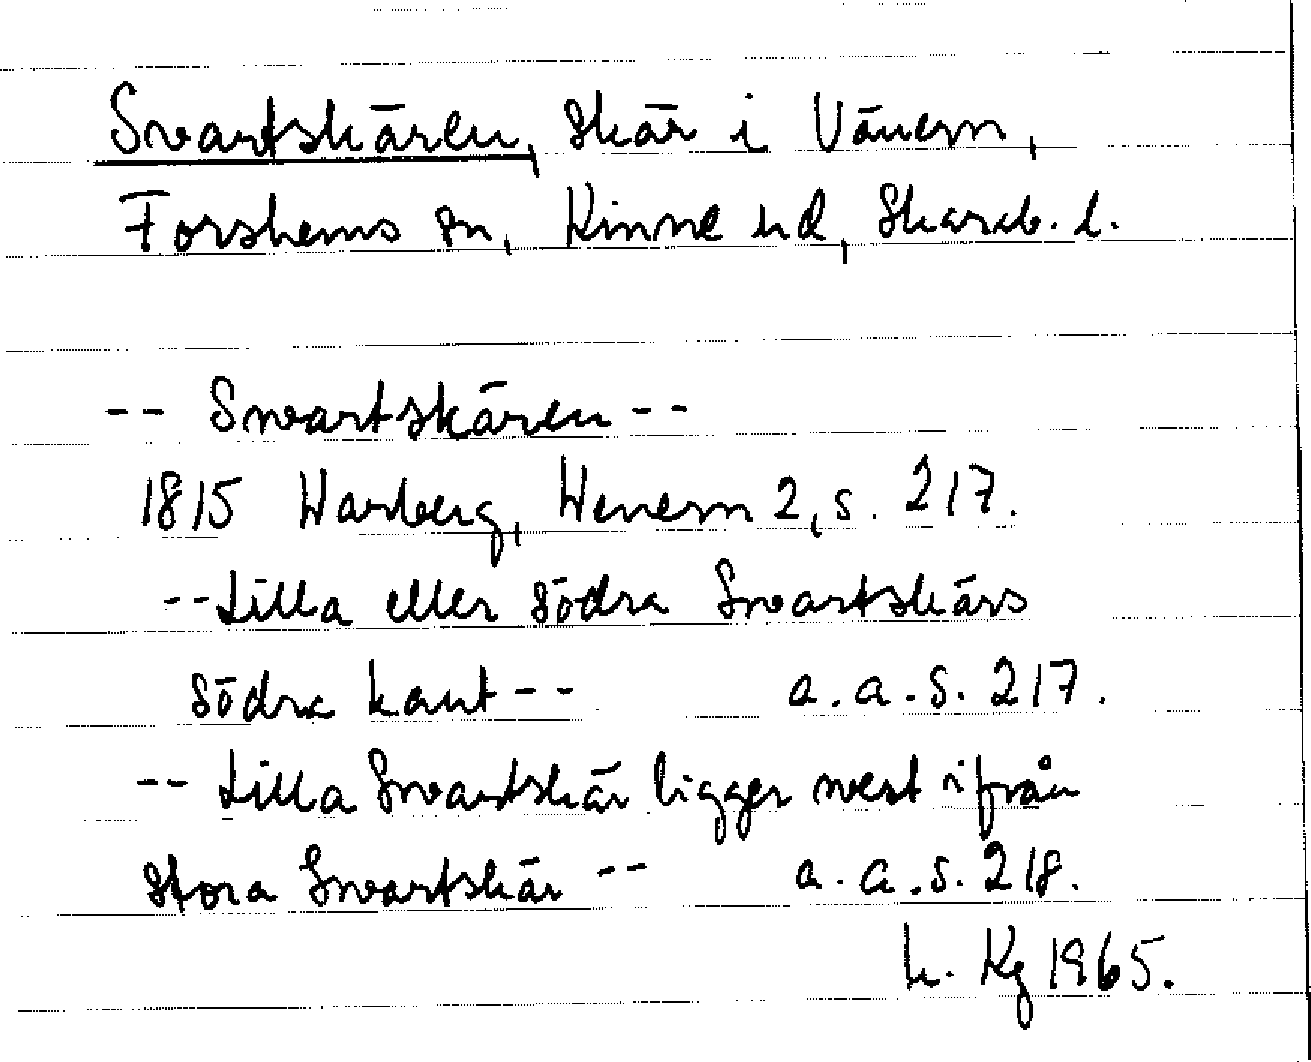 Svartskären, skär i Vänern,
Forshems sn, Kinne hd, Skarab. l.
-- Swartskären --
1815 Warberg, Wenern 2, s. 217.
-- Lilla eller södra Swartskärs
södra kant -- a. a. s. 217.
-- Lilla Swartskär ligger west ifrån
stora Swartskär -- a. a. s. 218.
L. Kg 1965.